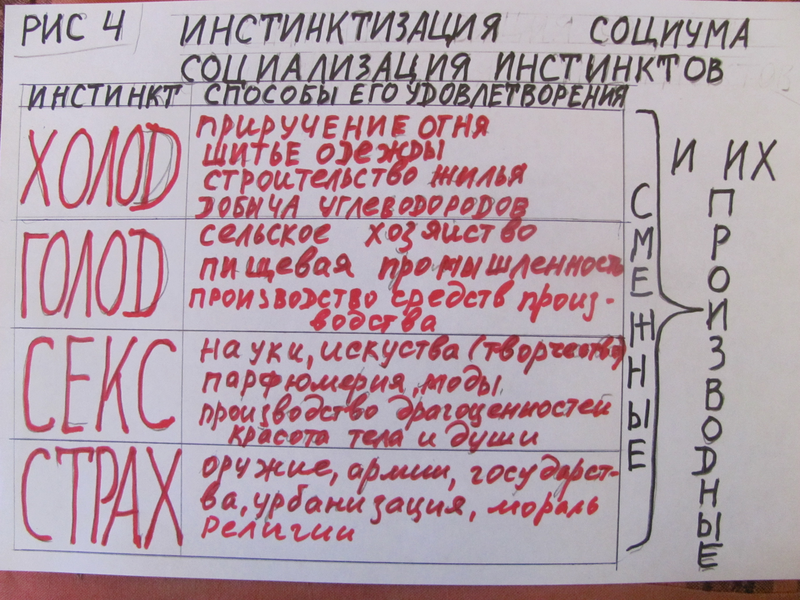 РИС 4 ИНСТИНКТИЗАЦИЯ СОЦИУМА
СОЦИАЛИЗАЦИЯ ИНСТИНКТОВ
ИНСТИНКТ СПОСОБЫ ЕГО УДОВЛЕТВОРЕНИЯ
ХОЛОД
ПРИРУЧЕНИЕ ОГНЯ
ШИТЬЕ ОДЕЖДЫ
СТРОИТЕЛЬСТВО ЖИЛЬЯ
ДОБЫЧА УГЛЕВОДОРОДОВ
ГОЛОД
СЕЛЬСКОЕ ХОЗЯЙСТВО
ПИЩЕВАЯ ПРОМЫШЛЕННОСТЬ
ПРОИЗВОДСТВО СРЕДСТВ ПРОИЗ-
ВОДСТВА
СЕКС
НАУКИ, ИСКУСТВА (ТВОРЧЕСТВО)
ПАРФЮМЕРИЯ, МОДЫ
ПРОИЗВОДСТВО ДРАГОЦЕННОСТЕЙ
КРАСОТА ТЕЛА И ДУШИ
СТРАХ
ОРУЖИЕ, АРМИИ, ГОСУДАРСТ-
ВА, УРБАНИЗАЦИЯ, МОРАЛЬ
РЕЛИГИИ
СМЕЖНЫЕ
И ИХ
ПРОИЗВОДНЫЕ